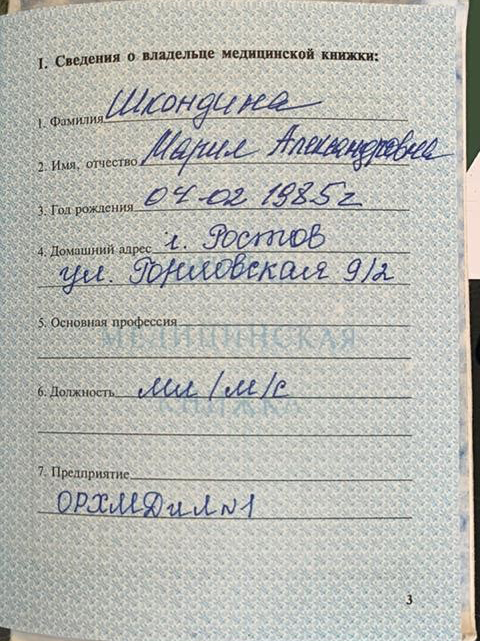 I. Сведения о владельце медицинской книжки:
1. Фамилия Шкондина
2. Имя, отчество Мария Александровна
3. Год рождения 04-02 1985г
4. Домашний адрес г. Ростов
ул. Горловская 9/2
5. Основная профессия
МЕДИЦИНСКАЯ
6. Должность мл/м/с
КНИЖКА
7. Предприятие
3